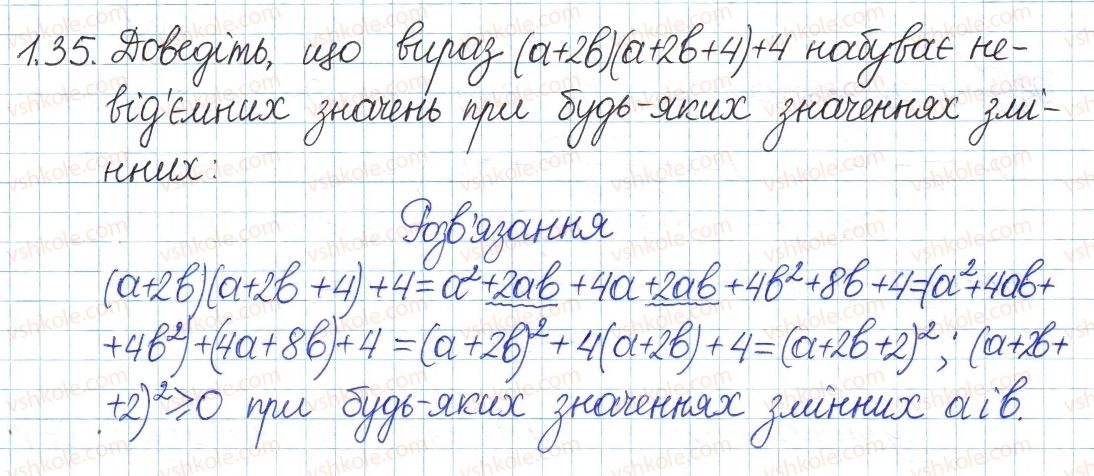 1.35. Доведіть, що вираз (a+2b)(a+2b+4)+4 набуває не-
від'ємних значень при будь-яких значеннях змі-
нних:
Розв'язання
(a+2b)(a+2b+4)+4=a²+2ab+4a+2ab+4b²+8b+4=(a²+4ab+
+4b²)+(4a+8b)+4=(a+2b)²+4(a+2b)+4=(a+2b+2)²; (a+2b+
+2)²≥0 при будь-яких значеннях змінних a і b.